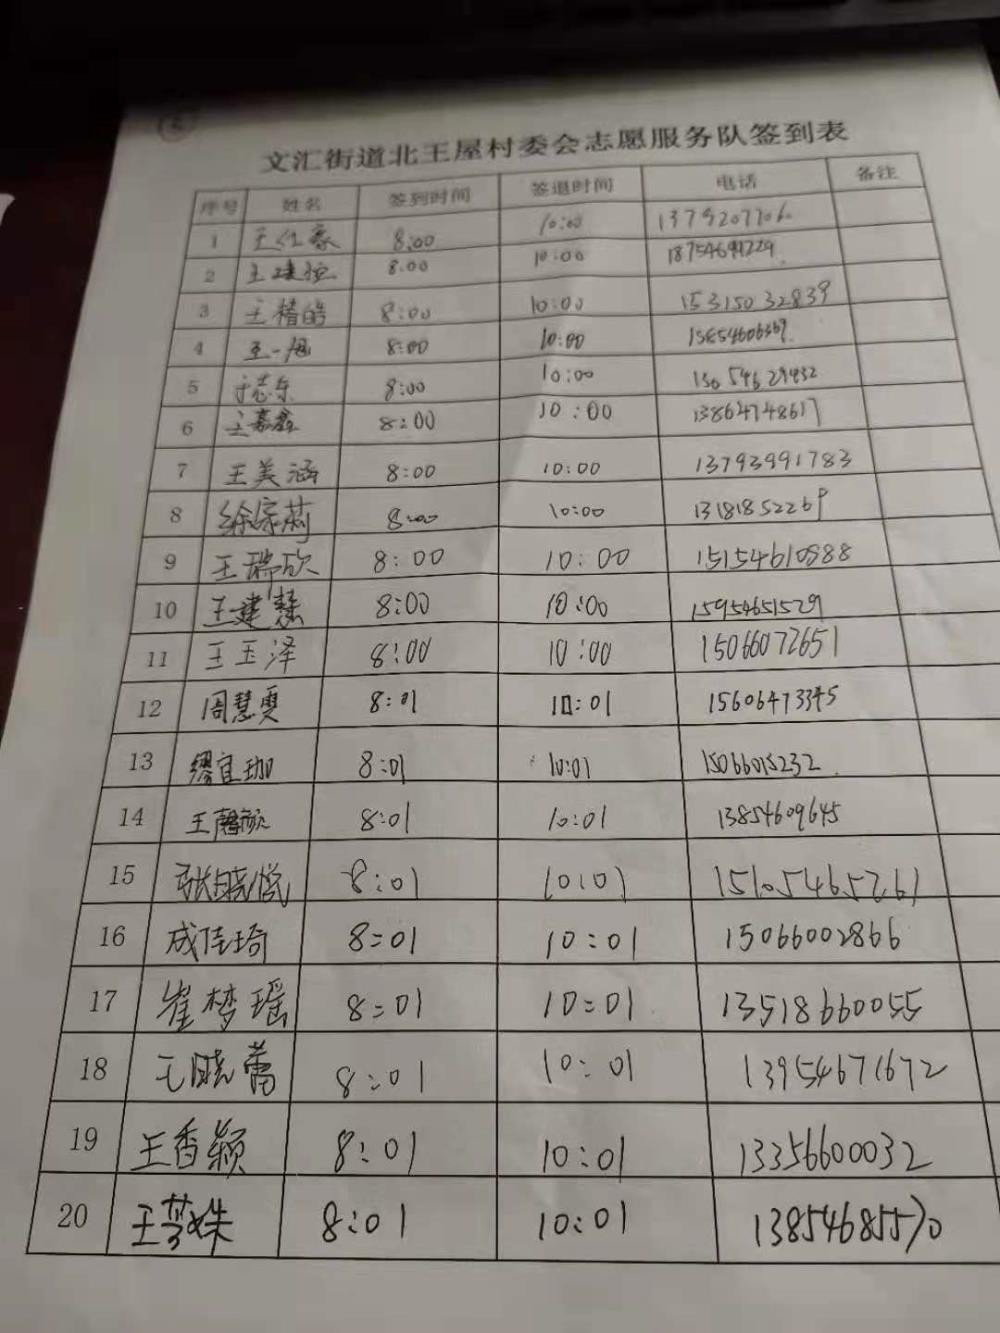 文汇街道北王屋村委会志愿服务队签到表
序号 姓名 签到时间 签退时间 电话 备注
1 王仁豪 8:00 10:00
2 王建恒 8:00 10:00
3 王楷皓 8:00 10:00 15315032839
4 王一旭 8:00 10:00
5 于志东 8:00 10:00 15054629432
6 王嘉鑫 8:00 10:00 13864748617
7 王美涵 8:00 10:00 13793991783
8 徐家莉 8:00 10:00 13181852269
9 王瑞欣 8:00 10:00 15154610888
10 王建慧 8:00 10:00 15954651529
11 王玉泽 8:00 10:00 15066072651
12 周慧雯 8:01 10:01 15606473345
13 缪宜珈 8:01 10:01 15066015232
14 王馨欣 8:01 10:01 13854609645
15 张晓悦 8:01 10:01
16 成佳琦 8:01 10:01 15066002866
17 崔梦瑶 8:01 10:01 13518660055
18 王晓蕾 8:01 10:01 13954671672
19 王香颖 8:01 10:01 13356600032
20 王梦姝 8:01 10:01 13854685570